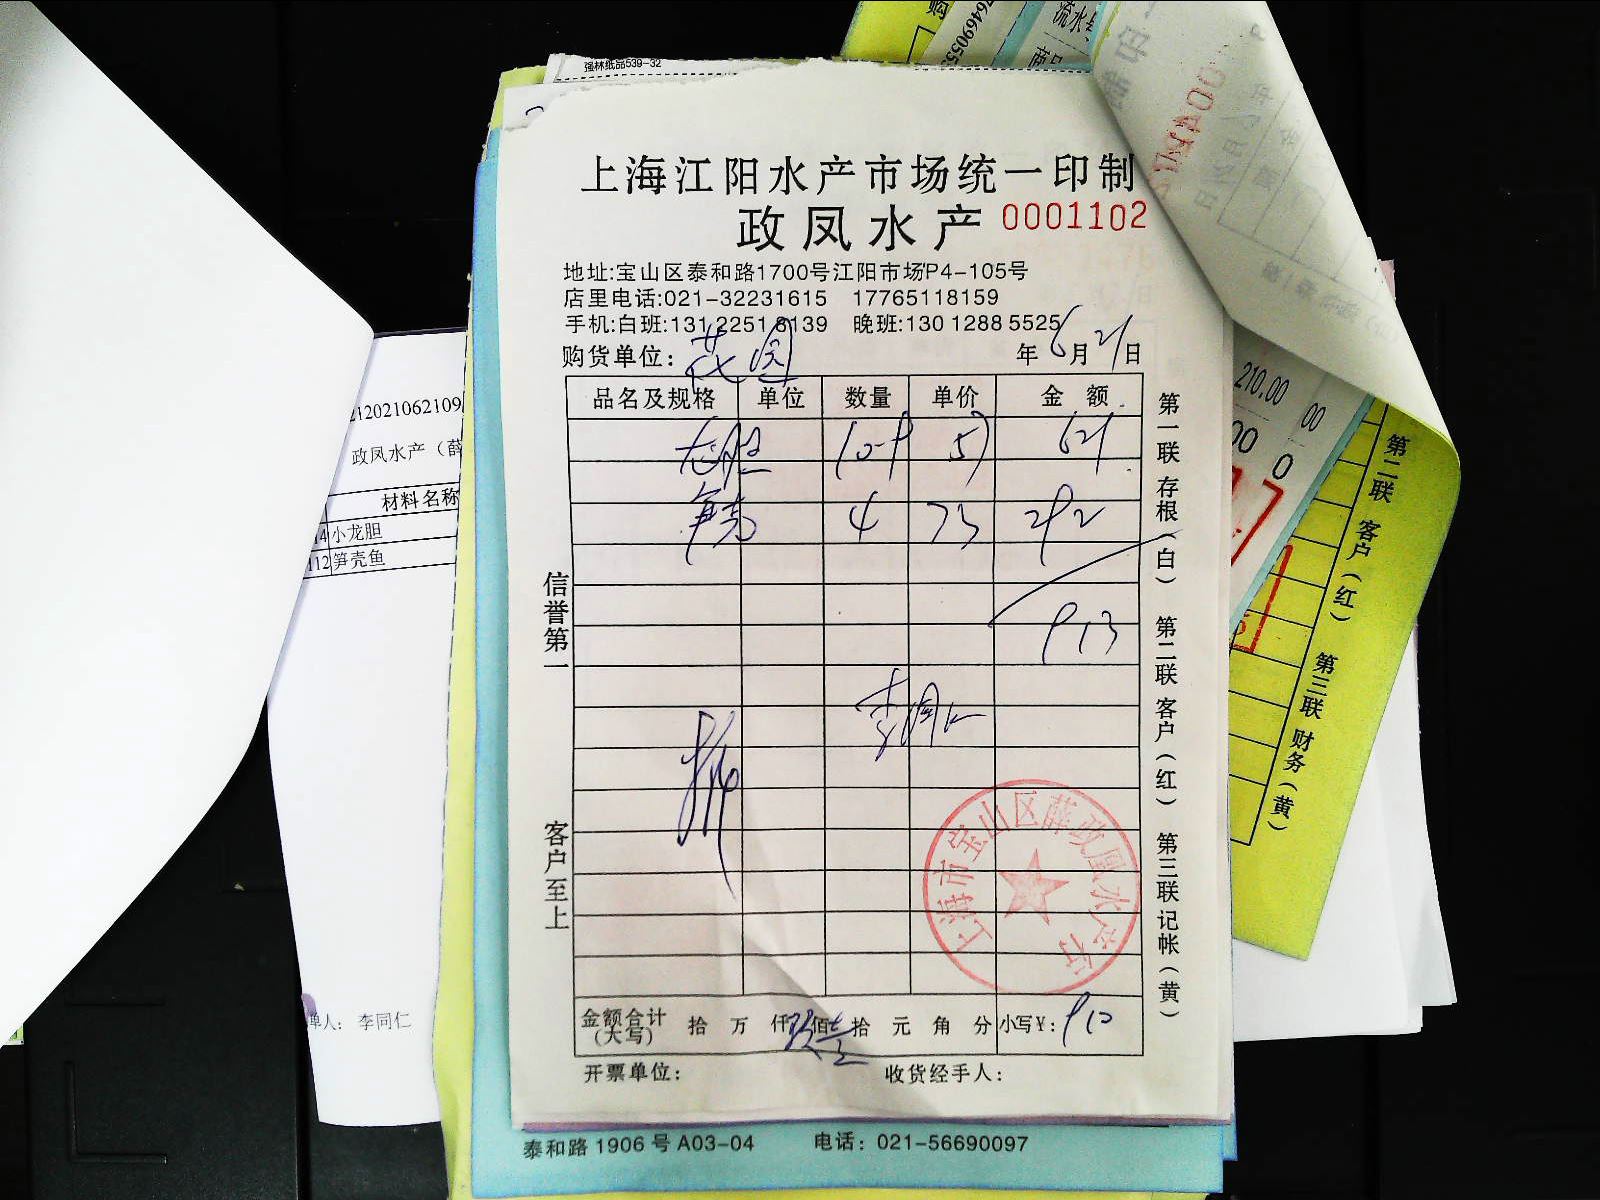 强林纸品539-32
上海江阳水产市场统一印制
政凤水产 0001102
地址:宝山区泰和路1700号江阳市场P4-105号
店里电话:021-32231615 17765118159
手机:白班:131 2251 8139 晚班:130 1288 5525
购货单位: 花园 年 6月21日
品名及规格 单位 数量 单价 金额
龙胆 621
笋壳 4 73 292
913
李同仁
信誉第一
客户至上
第一联 存根(白) 第二联 客户(红) 第三联 记帐(黄)
上海市宝山区薛政凤水产行
金额合计(大写) 拾 万 仟 佰 拾 元 角 分 小写¥: 910
开票单位: 收货经手人:
泰和路 1906 号 A03-04 电话: 021-56690097
212021062109
政凤水产（薛
材料名称
14 小龙胆
112 笋壳鱼
单人: 李同仁
流水号
210.00
第二联 客户(红) 第三联 财务(黄)